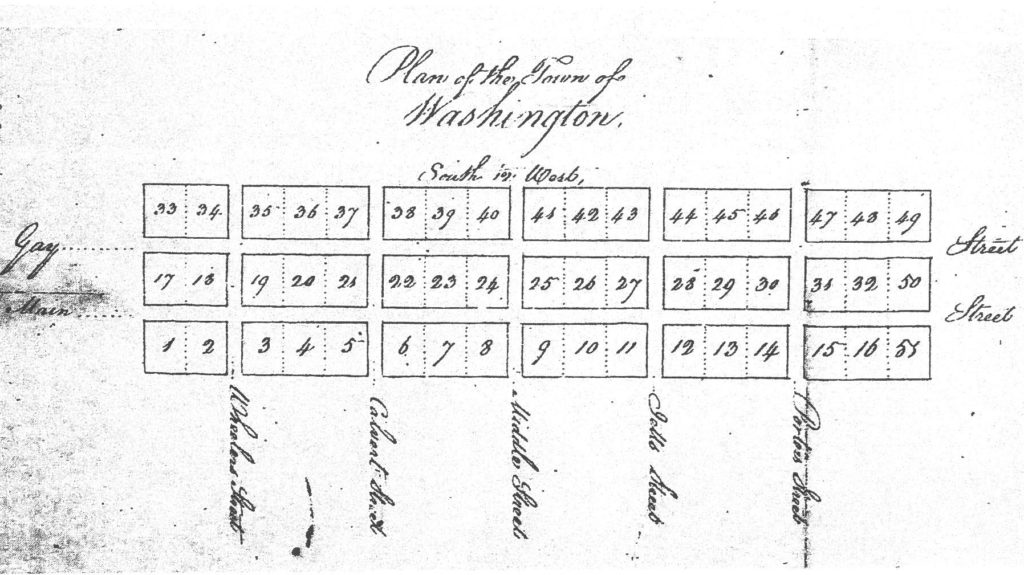 Plan of the Town of
Washington.
South in West,
33 34 35 36 37 38 39 40 41 42 43 44 45 46 47 48 49
Gay Street
17 18 19 20 21 22 23 24 25 26 27 28 29 30 31 32 50
Main Street
1 2 3 4 5 6 7 8 9 10 11 12 13 14 15 16 51
Wheelers Street
Calvert Street
Middle Street
Street
Porters Street